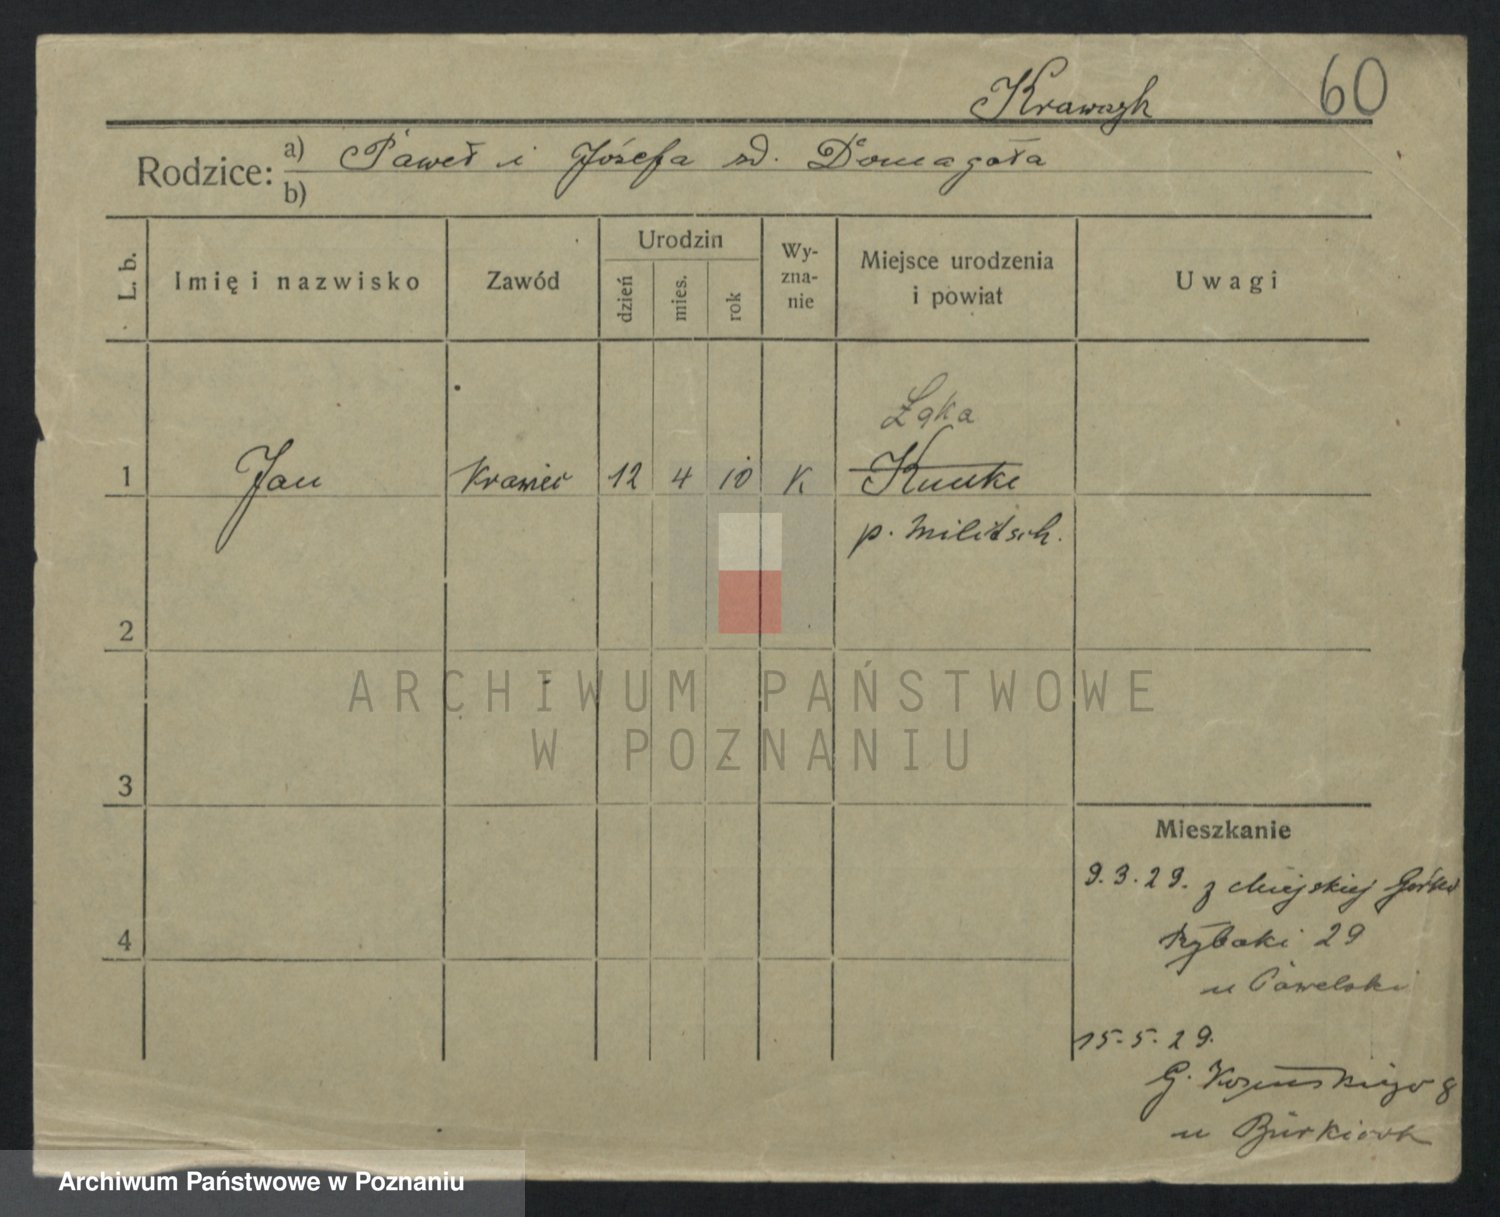 60
Krawczyk
Rodzice: a) Paweł i Józefa zd. Domagała
b)
L. b.
Imię i nazwisko
Zawód
Urodzin
dzień
mies.
rok
Wy-
zna-
nie
Miejsce urodzenia
i powiat
Uwagi
Łąka
1 Jan Krawiec 12 4 10 K
p. Militsch.
2
3
4
Mieszkanie
9.3.29. z Miejskiej Górki
Rybaki 29
u Pawelski
15.5.29.
G. Kosińskiego 8
u
ARCHIWUM PAŃSTWOWE
W POZNANIU
Archiwum Państwowe w Poznaniu